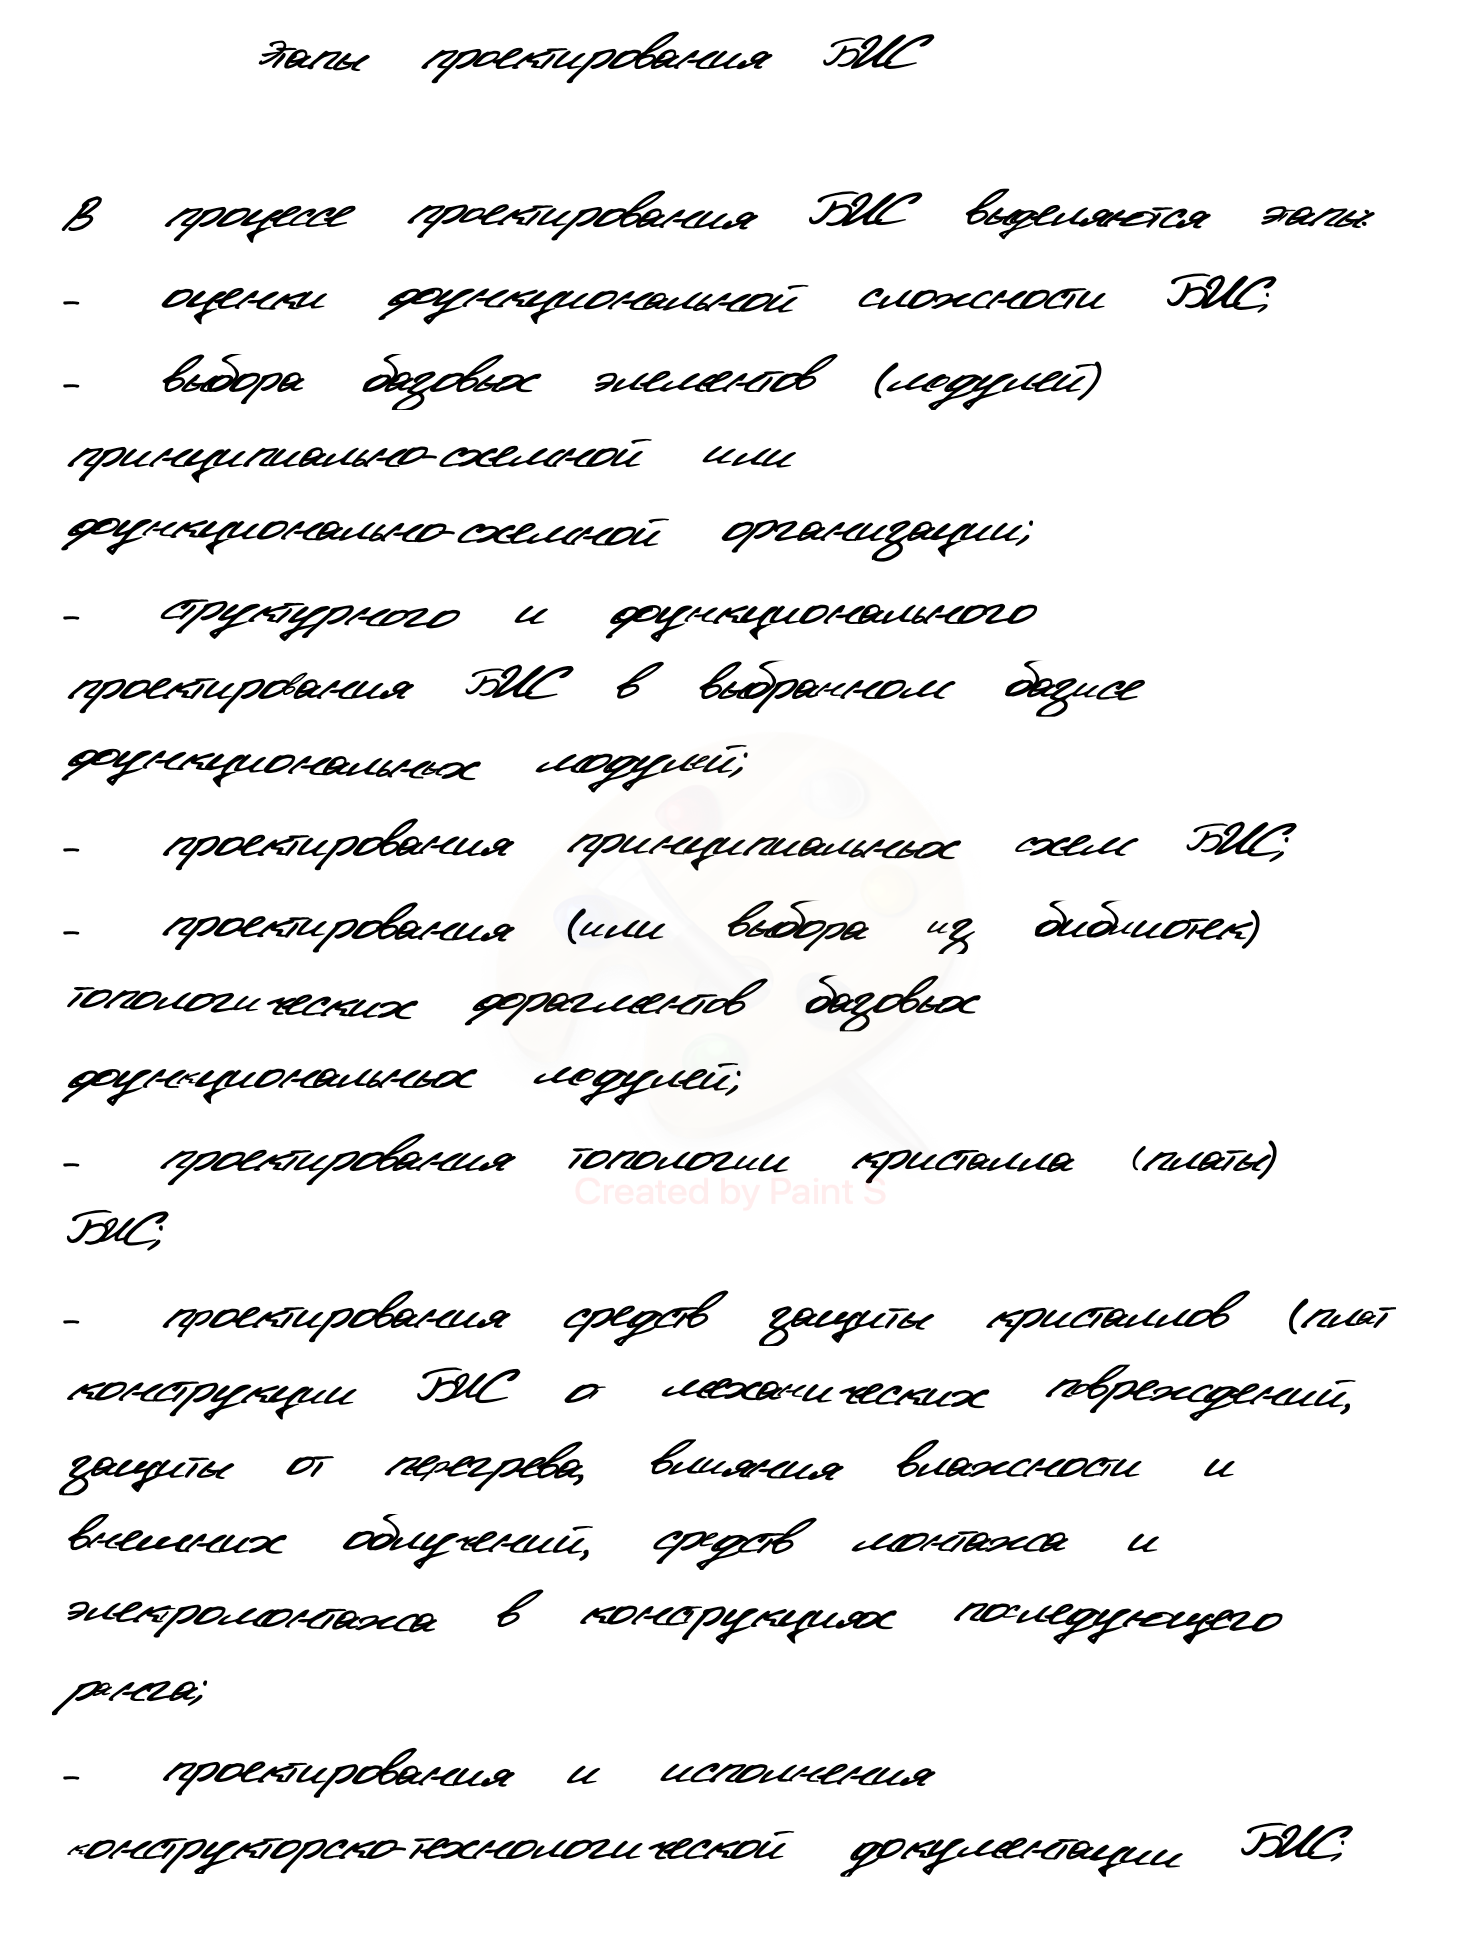 Этапы проектирования БИС
В процессе проектирования БИС выделяются этапы:
- оценки функциональной сложности БИС;
- выбора базовых элементов (модулей)
принципиально-схемной или
функционально-схемной организации;
- структурного и функционального
проектирования БИС в выбранном базисе
функциональных модулей;
- проектирования принципиальных схем БИС;
- проектирования (или выбора из библиотек)
топологических фрагментов базовых
функциональных модулей;
- проектирования топологии кристалла (платы)
Created by Paint S
БИС;
- проектирования средств защиты кристаллов (плат
конструкции БИС о механических повреждений,
защиты от перегрева, влияния влажности и
внешних облучений, средств монтажа и
электромонтажа в конструкциях последующего
ранга;
- проектирования и исполнения
конструкторско-технологической документации БИС;